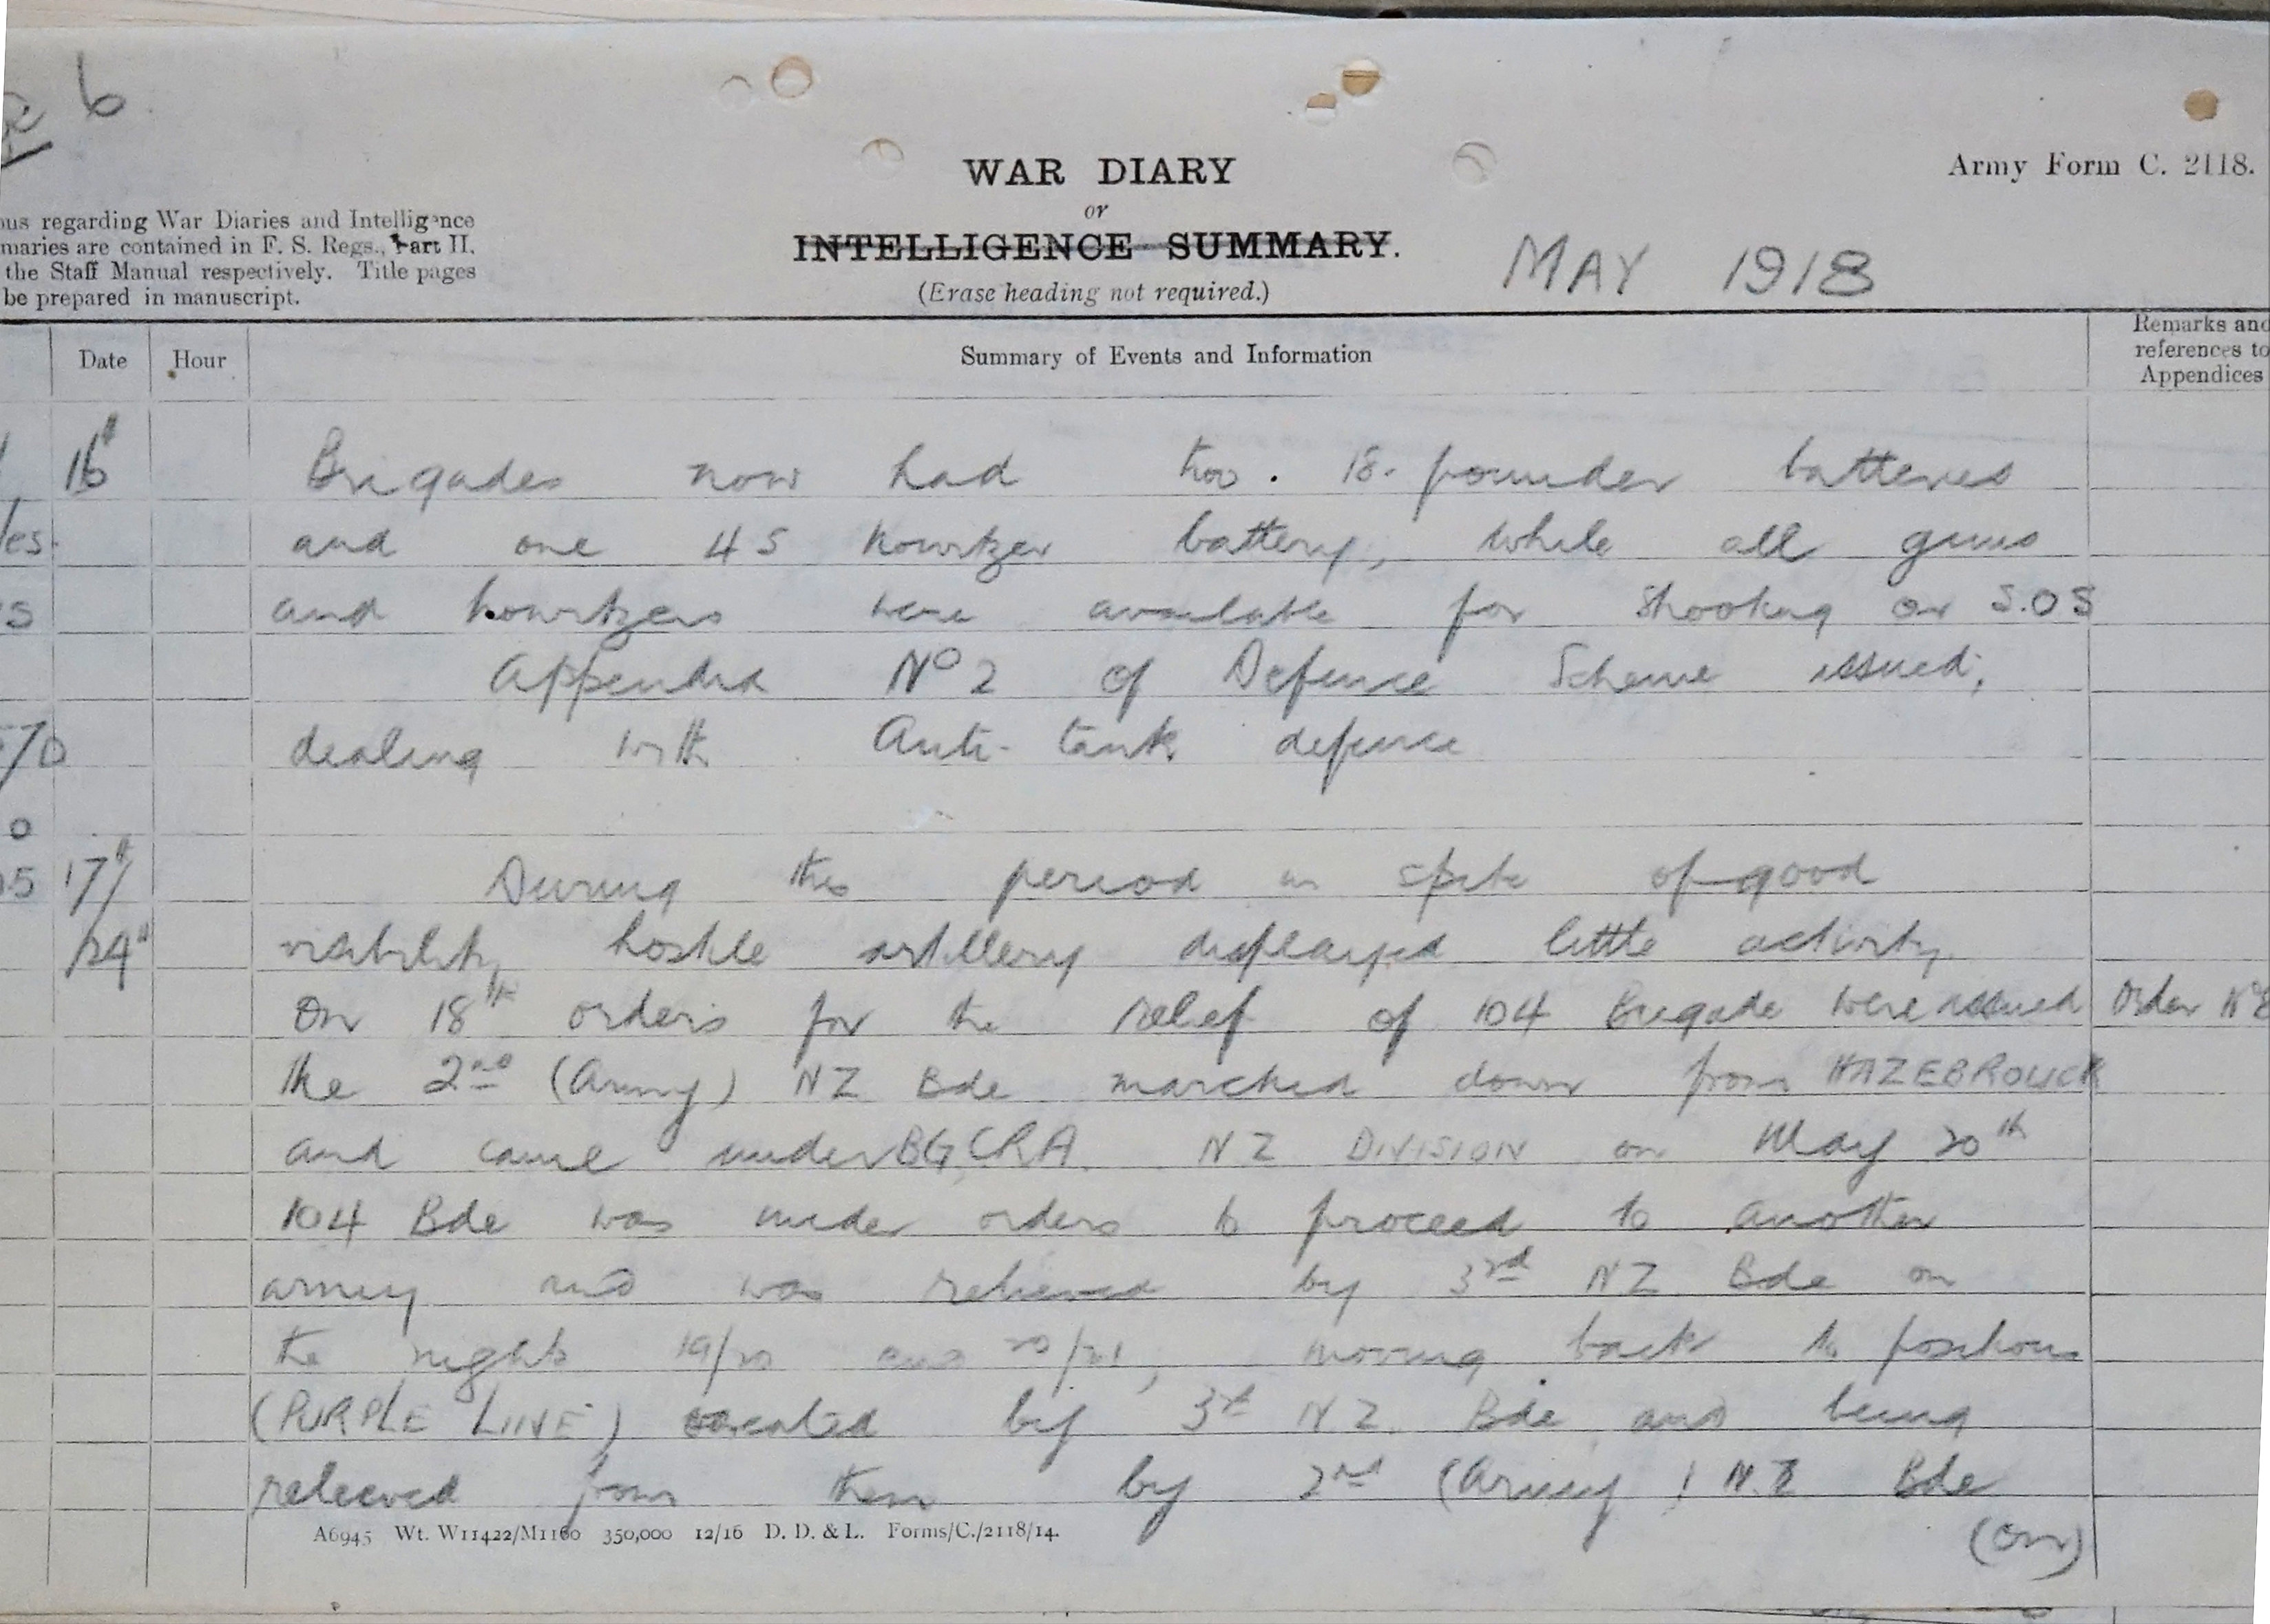 6
WAR DIARY
Army Form C. 2118.
or
regarding War Diaries and Intelligence
maries are contained in F. S. Regs., Part II.
the Staff Manual respectively. Title pages
be prepared in manuscript.
INTELLIGENCE SUMMARY.
(Erase heading not required.)
MAY 1918
Date Hour Summary of Events and Information Remarks and
references to
Appendices
16th Brigades now had two . 18. pounder batteries
and one 45 howitzer battery, while all guns
and howitzers were available for shooting on S.O.S
Appendix No 2 of Defence Scheme issued,
dealing with Anti-tank defence
17th/ During this period in spite of good
/24th visibility hostile artillery displayed little activity.
On 18th orders for the relief of 104 Brigade were issued Order No
the 2nd (Army) NZ Bde marched down from HAZEBROUCK
and came under BGCRA. NZ DIVISION on May 20th
104 Bde was under orders to proceed to another
army and was relieved by 3rd NZ Bde on
the nights 19/20 and 20/21, moving back to positions
(PURPLE LINE) vacated by 3rd NZ. Bde and being
relieved from them by 2nd (Army) N.Z Bde
(on)
A6945 Wt. W11422/M1160 350,000 12/16 D. D. & L. Forms/C./2118/14.